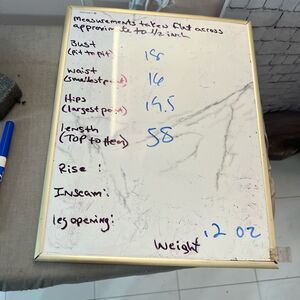 Measurements taken flat across
approximate to 1/2 inch
Bust
(pit to pit) 18
Waist
(smallest point) 16
Hips
(largest point) 19.5
length
(TOP to Hem) 58
Rise :
Inseam :
leg opening :
Weight .12 oz